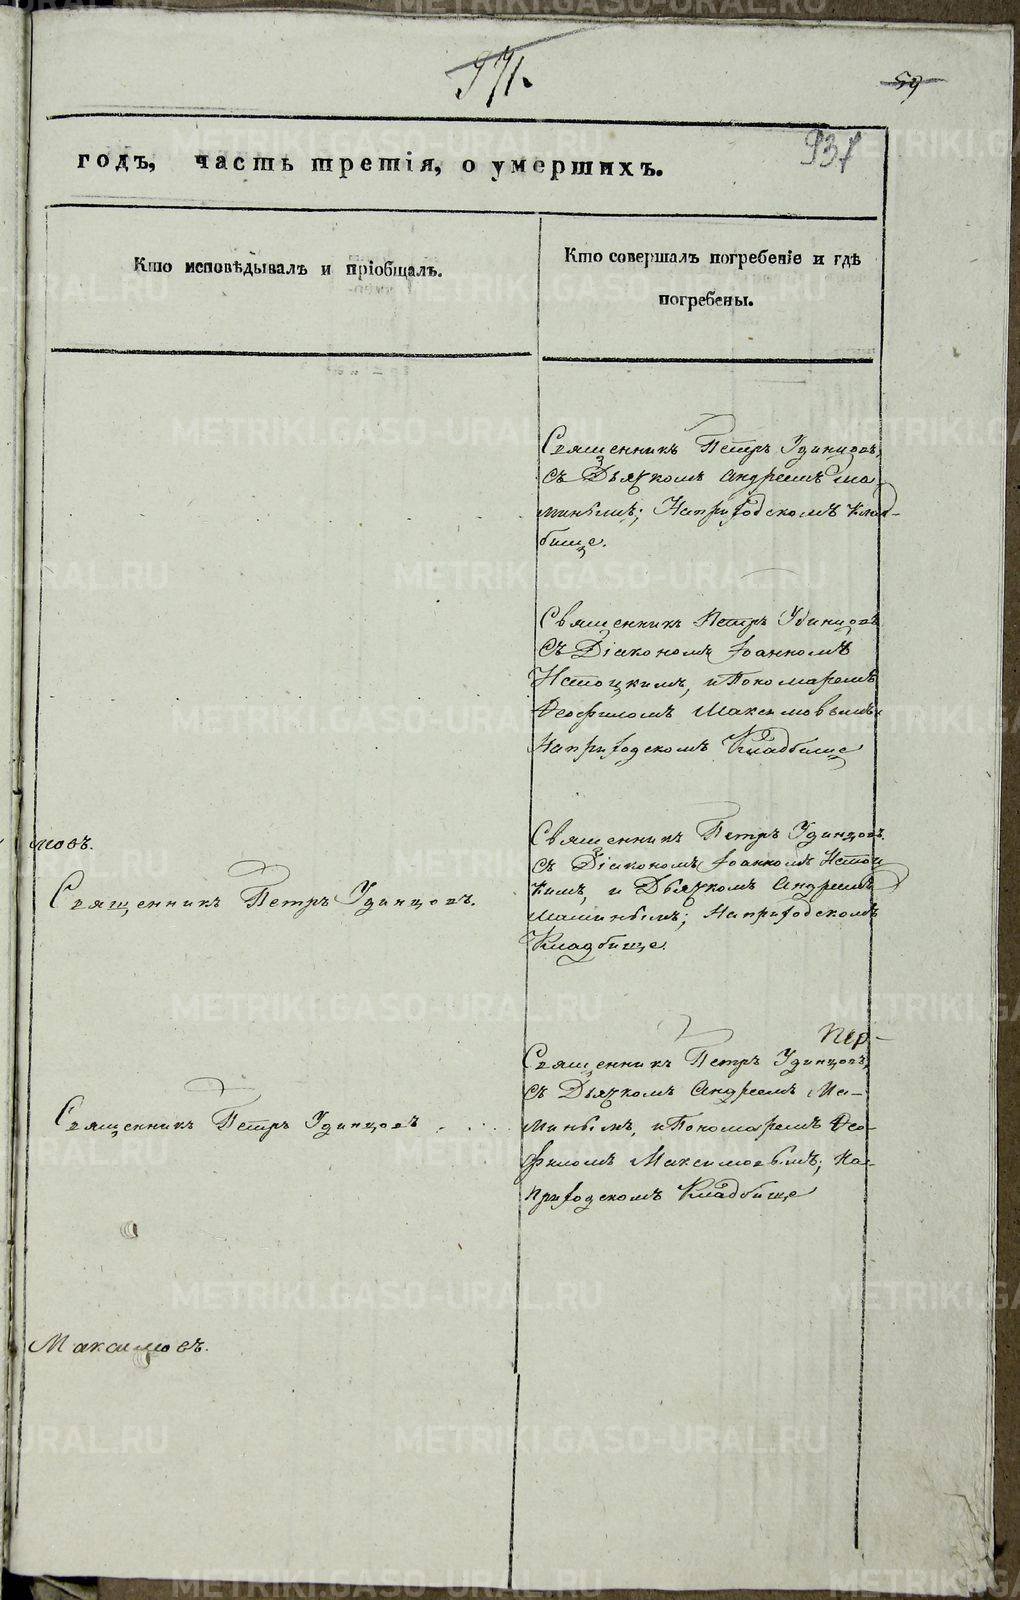 971.
59
937
годъ, часть третія, о умершихъ.
Кто исповѣдывалъ и пріобщалъ.
Кто совершалъ погребеніе и гдѣ
погребены.
Священникъ Петръ Удинцовъ,
съ Дьячкомъ Андреемъ Ма-
минымъ; На приходскомъ клад-
бище.
Священникъ Петръ Удинцовъ
съ Діакономъ Іоанномъ
и Пономаремъ
Феофиломъ Максимовымъ
На приходскомъ Кладбище
мовъ.
Священникъ Петръ Удинцовъ.
Священникъ Петръ Удинцовъ.
съ Діакономъ Іоанномъ
кимъ, и Дьячкомъ Андреемъ
Маминымъ; На приходскомъ
Кладбище.
Священникъ Петръ Удинцовъ
Священникъ Петръ Удинцовъ,
съ Дьячкомъ Андреемъ Ма-
минымъ, и Пономаремъ Фео-
филомъ Максимовымъ; На-
приходскомъ Кладбище
Максимовъ.
METRIKI.GASO-URAL.RU